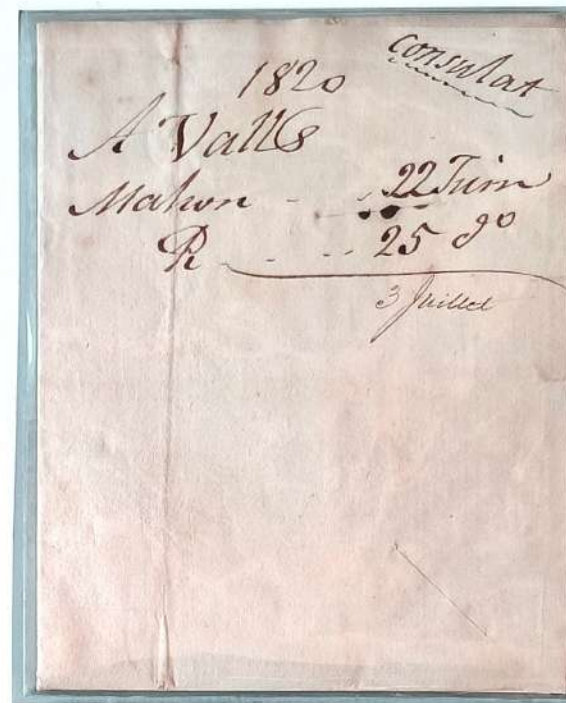 consulat
1820
A Valls
Mahon - - 22 Juin
R - - - 25 do
3 Juillet